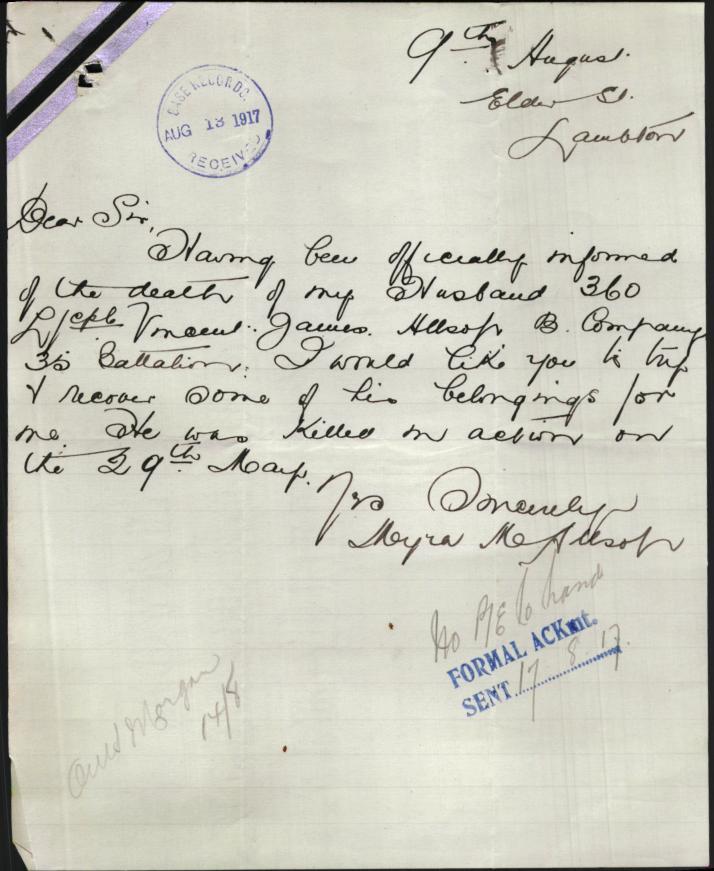 9th August.
Elder St.
Lambton
BASE RECORDS.
AUG 13 1917
RECEIVED
Dear Sir,
Having been officially informed
of the death of my Husband 360
L/cpl Vincent James Allsop B. Company
35 Battalion. I would like you to try
& recover some of his belongings for
me. He was Killed in action on
the 29th May.
Yrs Sincerely
Myra M Allsop
No P/E to hand
FORMAL ACKmt.
SENT 17 8 17.
Morgan
14/8